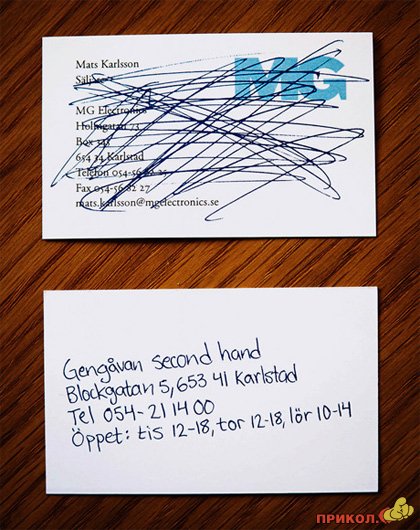 Mats Karlsson
MG
MG Electronics
Holmgatan 73
Box
654 34 Karlstad
Telefon 054-56 82
Fax 054-56 82 27
mats.karlsson@mgelectronics.se
Gengåvan second hand
Blockgatan 5, 653 41 Karlstad
Tel 054-21 14 00
Öppet: tis 12-18, tor 12-18, lör 10-14
ПРИКОЛ.